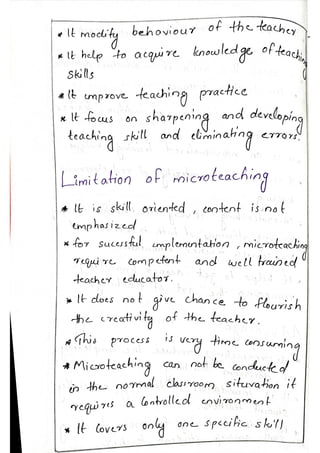 * It modify behoviour of the teacher
* It help to acquire knowledge of teaching
skills
* It improve teaching practice
* It focus on sharpening and developing
teaching skill and eliminating errors.
Limitation of microteaching
* It is skill oriented, content is not
emphasized
* for sucessful implementation, microteaching
require competent and well trained
teacher educator.
* It does not give chance to flourish
the creativity of the teacher.
* This process is very time consuming
* Microteaching can not be conducted
in the normal classroom situvation it
requires a controlled environment
* It covers only one specific skill